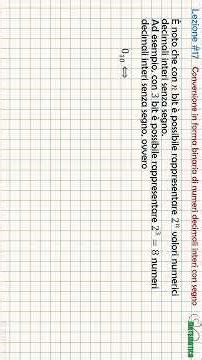 Lezione #17 Conversione in forma binaria di numeri decimali interi con segno
È noto che con n bit è possibile rappresentare 2ⁿ valori numerici
decimali interi senza segno.
Ad esempio, con 3 bit è possibile rappresentare 2³ = 8 numeri
decimali interi senza segno, ovvero
0₁₀ ⇔